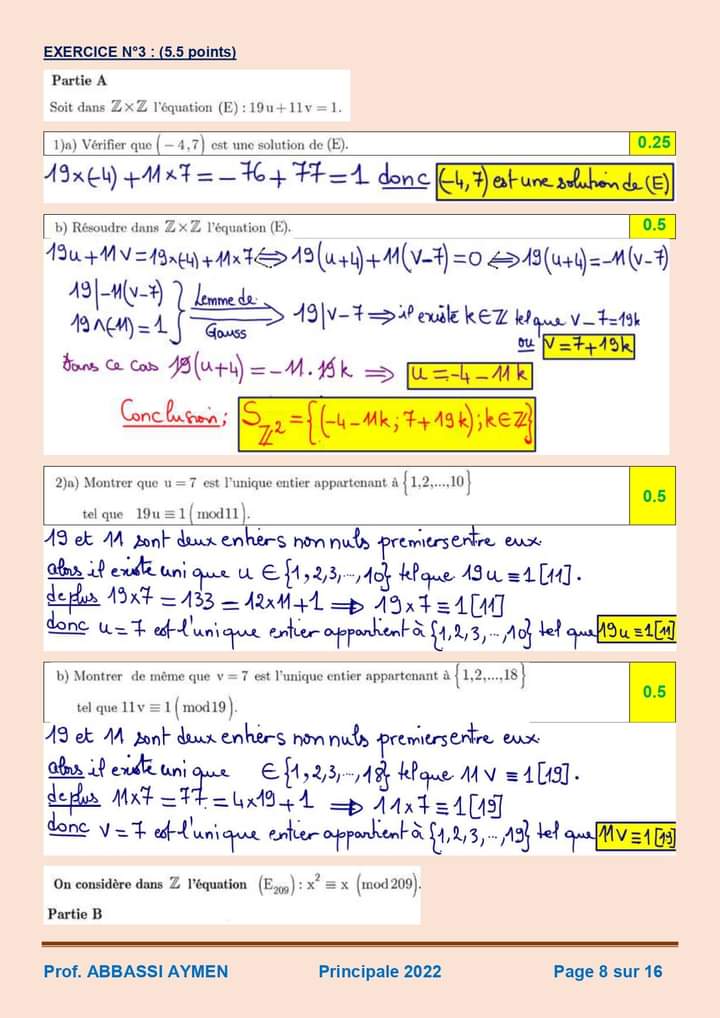 EXERCICE N°3 : (5.5 points)
Partie A
Soit dans ℤ×ℤ l'équation (E) : 19u+11v=1.
1)a) Vérifier que (-4,7) est une solution de (E). 0.25
19×(-4)+11×7=-76+77=1 donc (-4,7) est une solution de (E)
b) Résoudre dans ℤ×ℤ l'équation (E). 0.5
19u+11v=19×(-4)+11×7⟺19(u+4)+11(v-7)=0⟺19(u+4)=-11(v-7)
19|-11(v-7)
19∧(11)=1 } Lemme de Gauss ⟹ 19|v-7⟹il existe k∈ℤ tel que v-7=19k
ou v=7+19k
Dans ce cas 19(u+4)=-11.19k ⟹ u=-4-11k
Conclusion; S_ℤ²={(-4-11k;7+19k);k∈ℤ}
2)a) Montrer que u=7 est l'unique entier appartenant à {1,2,...,10} 0.5
tel que 19u≡1(mod11).
19 et 11 sont deux entiers non nuls premiers entre eux.
alors il existe unique u∈{1,2,3,...,10} tel que 19u≡1[11].
de plus 19×7=133=12×11+1⟹19×7≡1[11]
donc u=7 est l'unique entier appartient à {1,2,3,...,10} tel que 19u≡1[11]
b) Montrer de même que v=7 est l'unique entier appartenant à {1,2,...,18} 0.5
tel que 11v≡1(mod19).
19 et 11 sont deux entiers non nuls premiers entre eux.
alors il existe unique ∈{1,2,3,...,18} tel que 11v≡1[19].
de plus 11×7=77=4×19+1⟹11×7≡1[19]
donc v=7 est l'unique entier appartient à {1,2,3,...,19} tel que 11v≡1[19]
On considère dans ℤ l'équation (E₂₀₉) : x²≡x (mod209).
Partie B
Prof. ABBASSI AYMEN Principale 2022 Page 8 sur 16